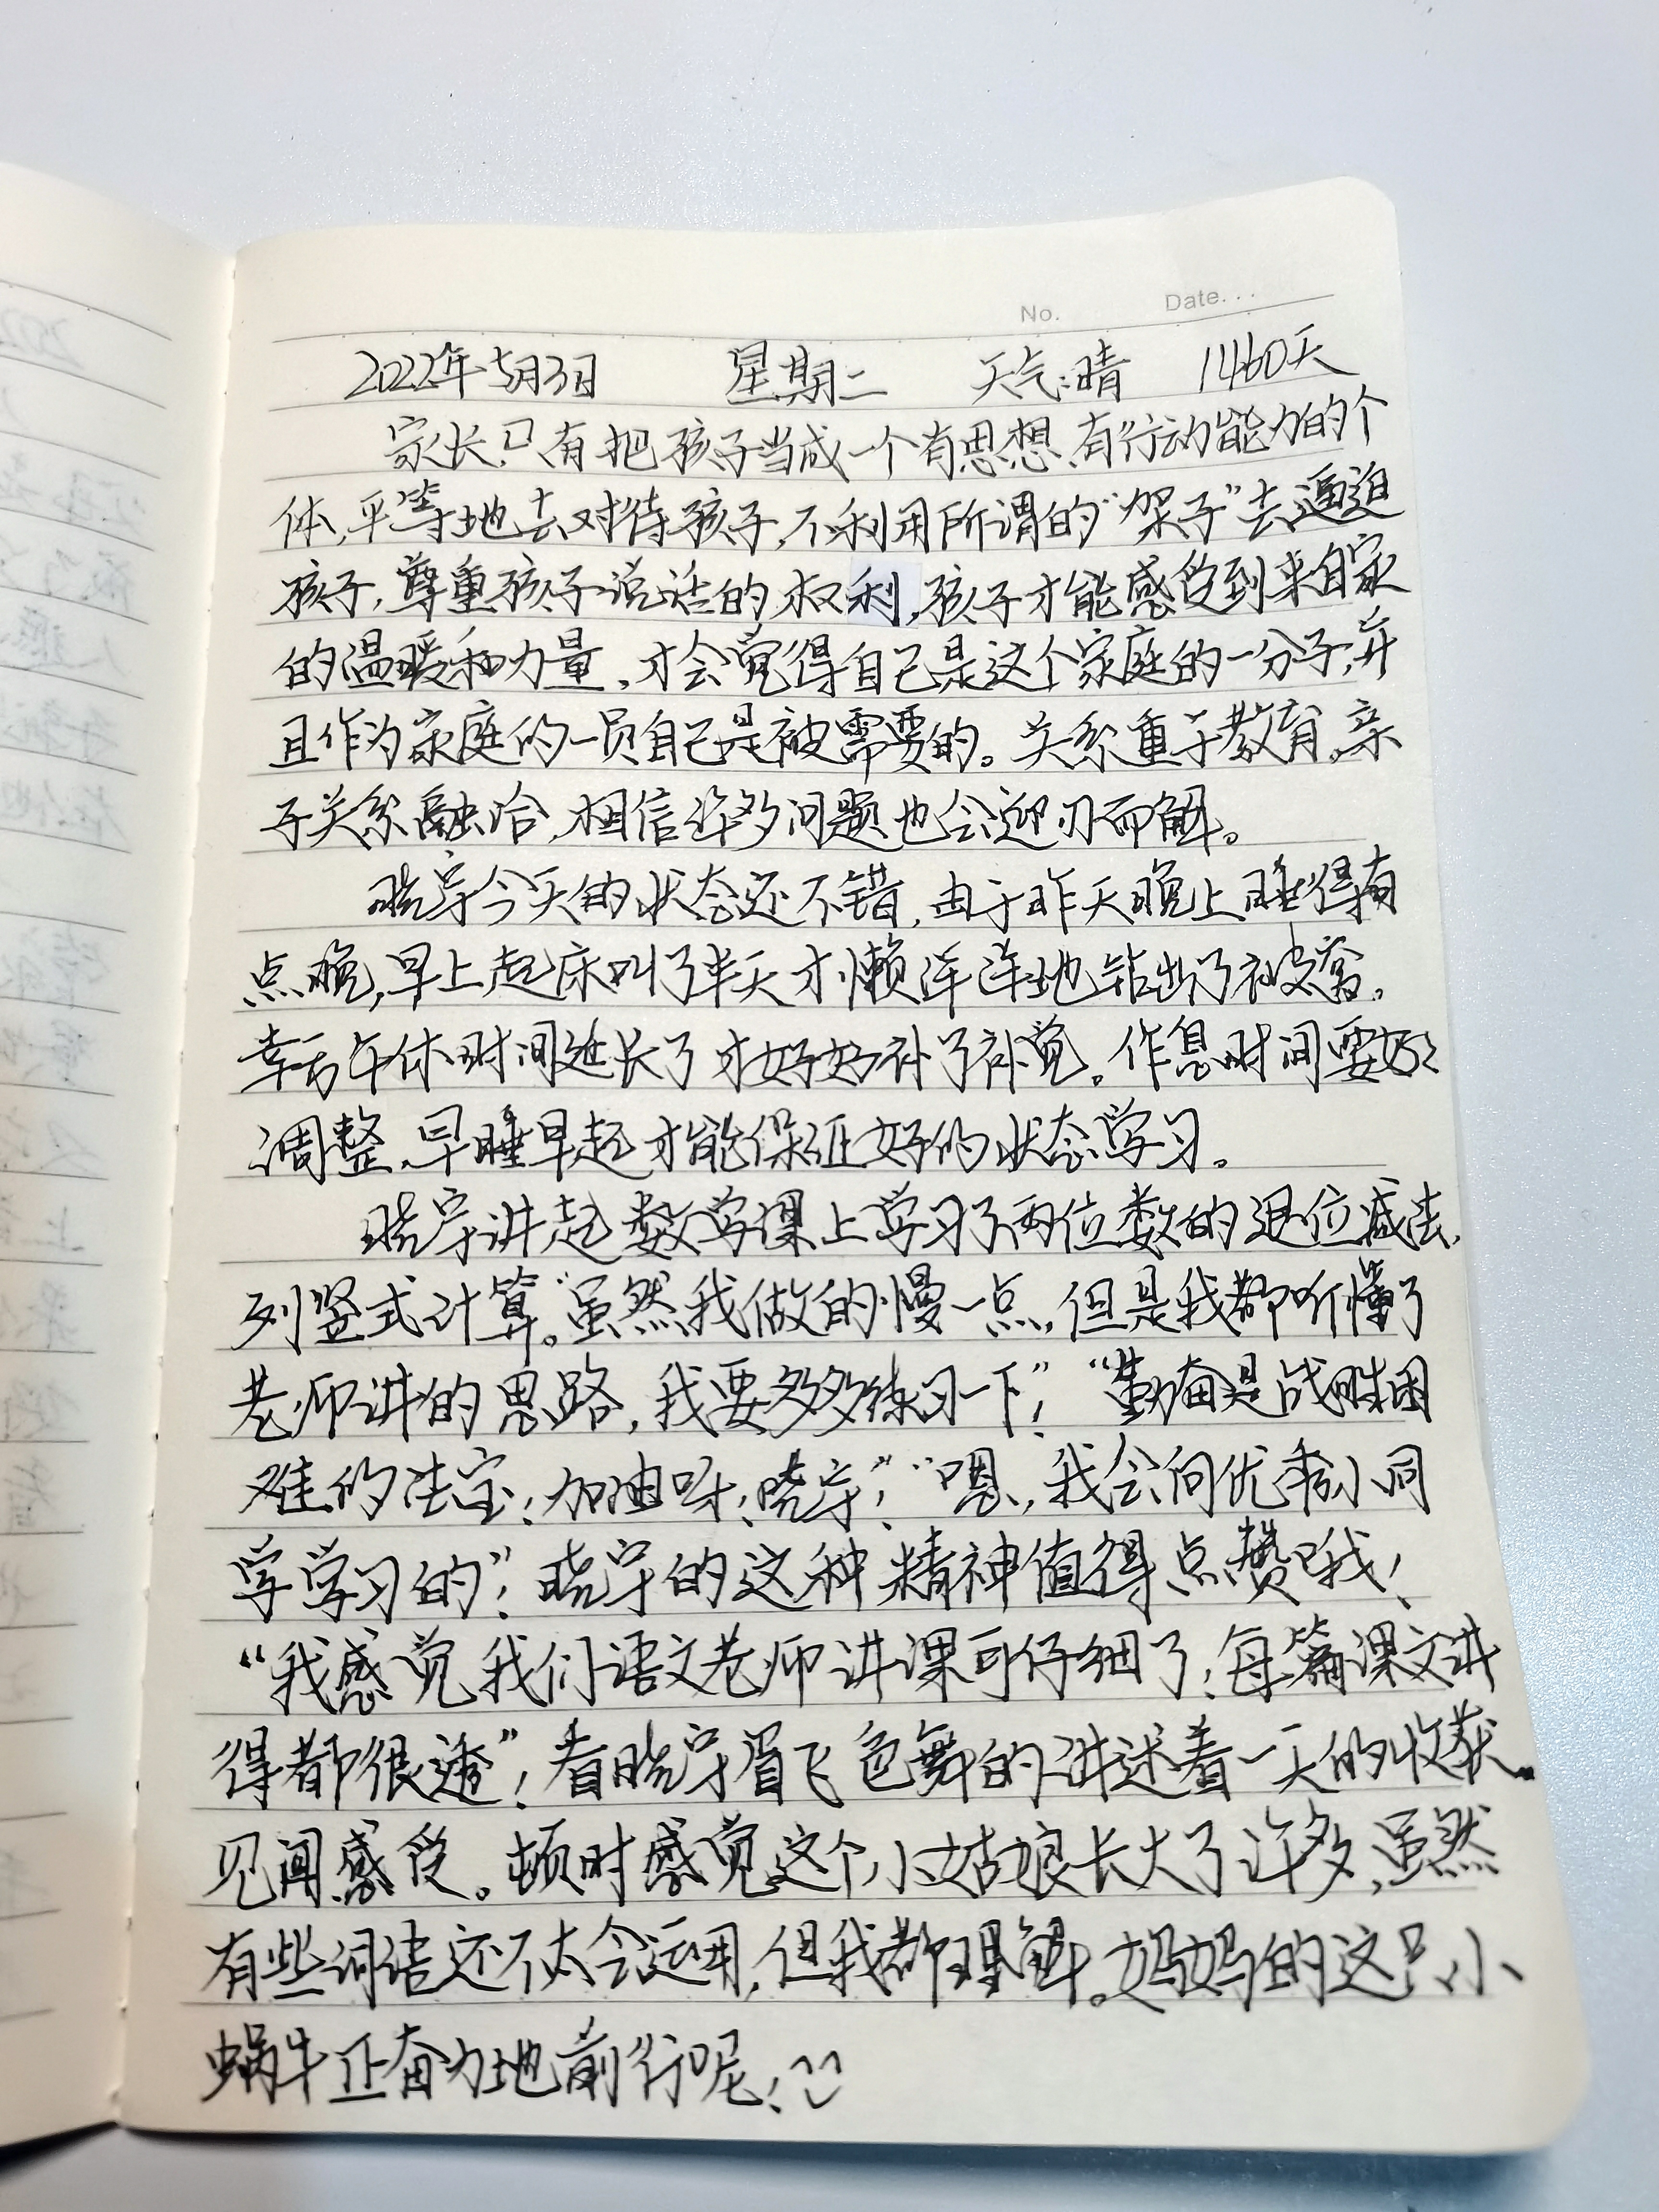 No. Date...
2022年5月3日 星期二 天气:晴 1460天
家长只有把孩子当成一个有思想、有行动能力的个
体,平等地去对待孩子,不利用所谓的“架子”去逼迫
孩子,尊重孩子说话的权利,孩子才能感受到来自家
的温暖和力量,才会觉得自己是这个家庭的一分子,并
且作为家庭的一员自己是被需要的。关系重于教育。亲
子关系融洽,相信许多问题也会迎刃而解。
晓宇今天的状态还不错,由于昨天晚上睡得有
点晚,早上起床叫了半天才懒洋洋地钻出了被窝。
幸亏午休时间延长了才好好补了补觉。作息时间要好好
调整,早睡早起才能保证好的状态学习。
晓宇讲起数学课上学习了两位数的退位减法,
列竖式计算。“虽然我做的慢一点,但是我都听懂了
老师讲的思路,我要多多练习一下”!“勤奋是战胜困
难的法宝!加油呀!晓宇”!“嗯,我会向优秀小同
学学习的”!晓宇的这种精神值得点赞哦!
“我感觉我们语文老师讲课可仔细了!每篇课文讲
得都很透”!看晓宇眉飞色舞的讲述着一天的收获、
见闻感受。顿时感觉这个小姑娘长大了许多,虽然
有些词语还不太会运用,但我都理解。妈妈的这只小
蜗牛正奋力地前行呢!